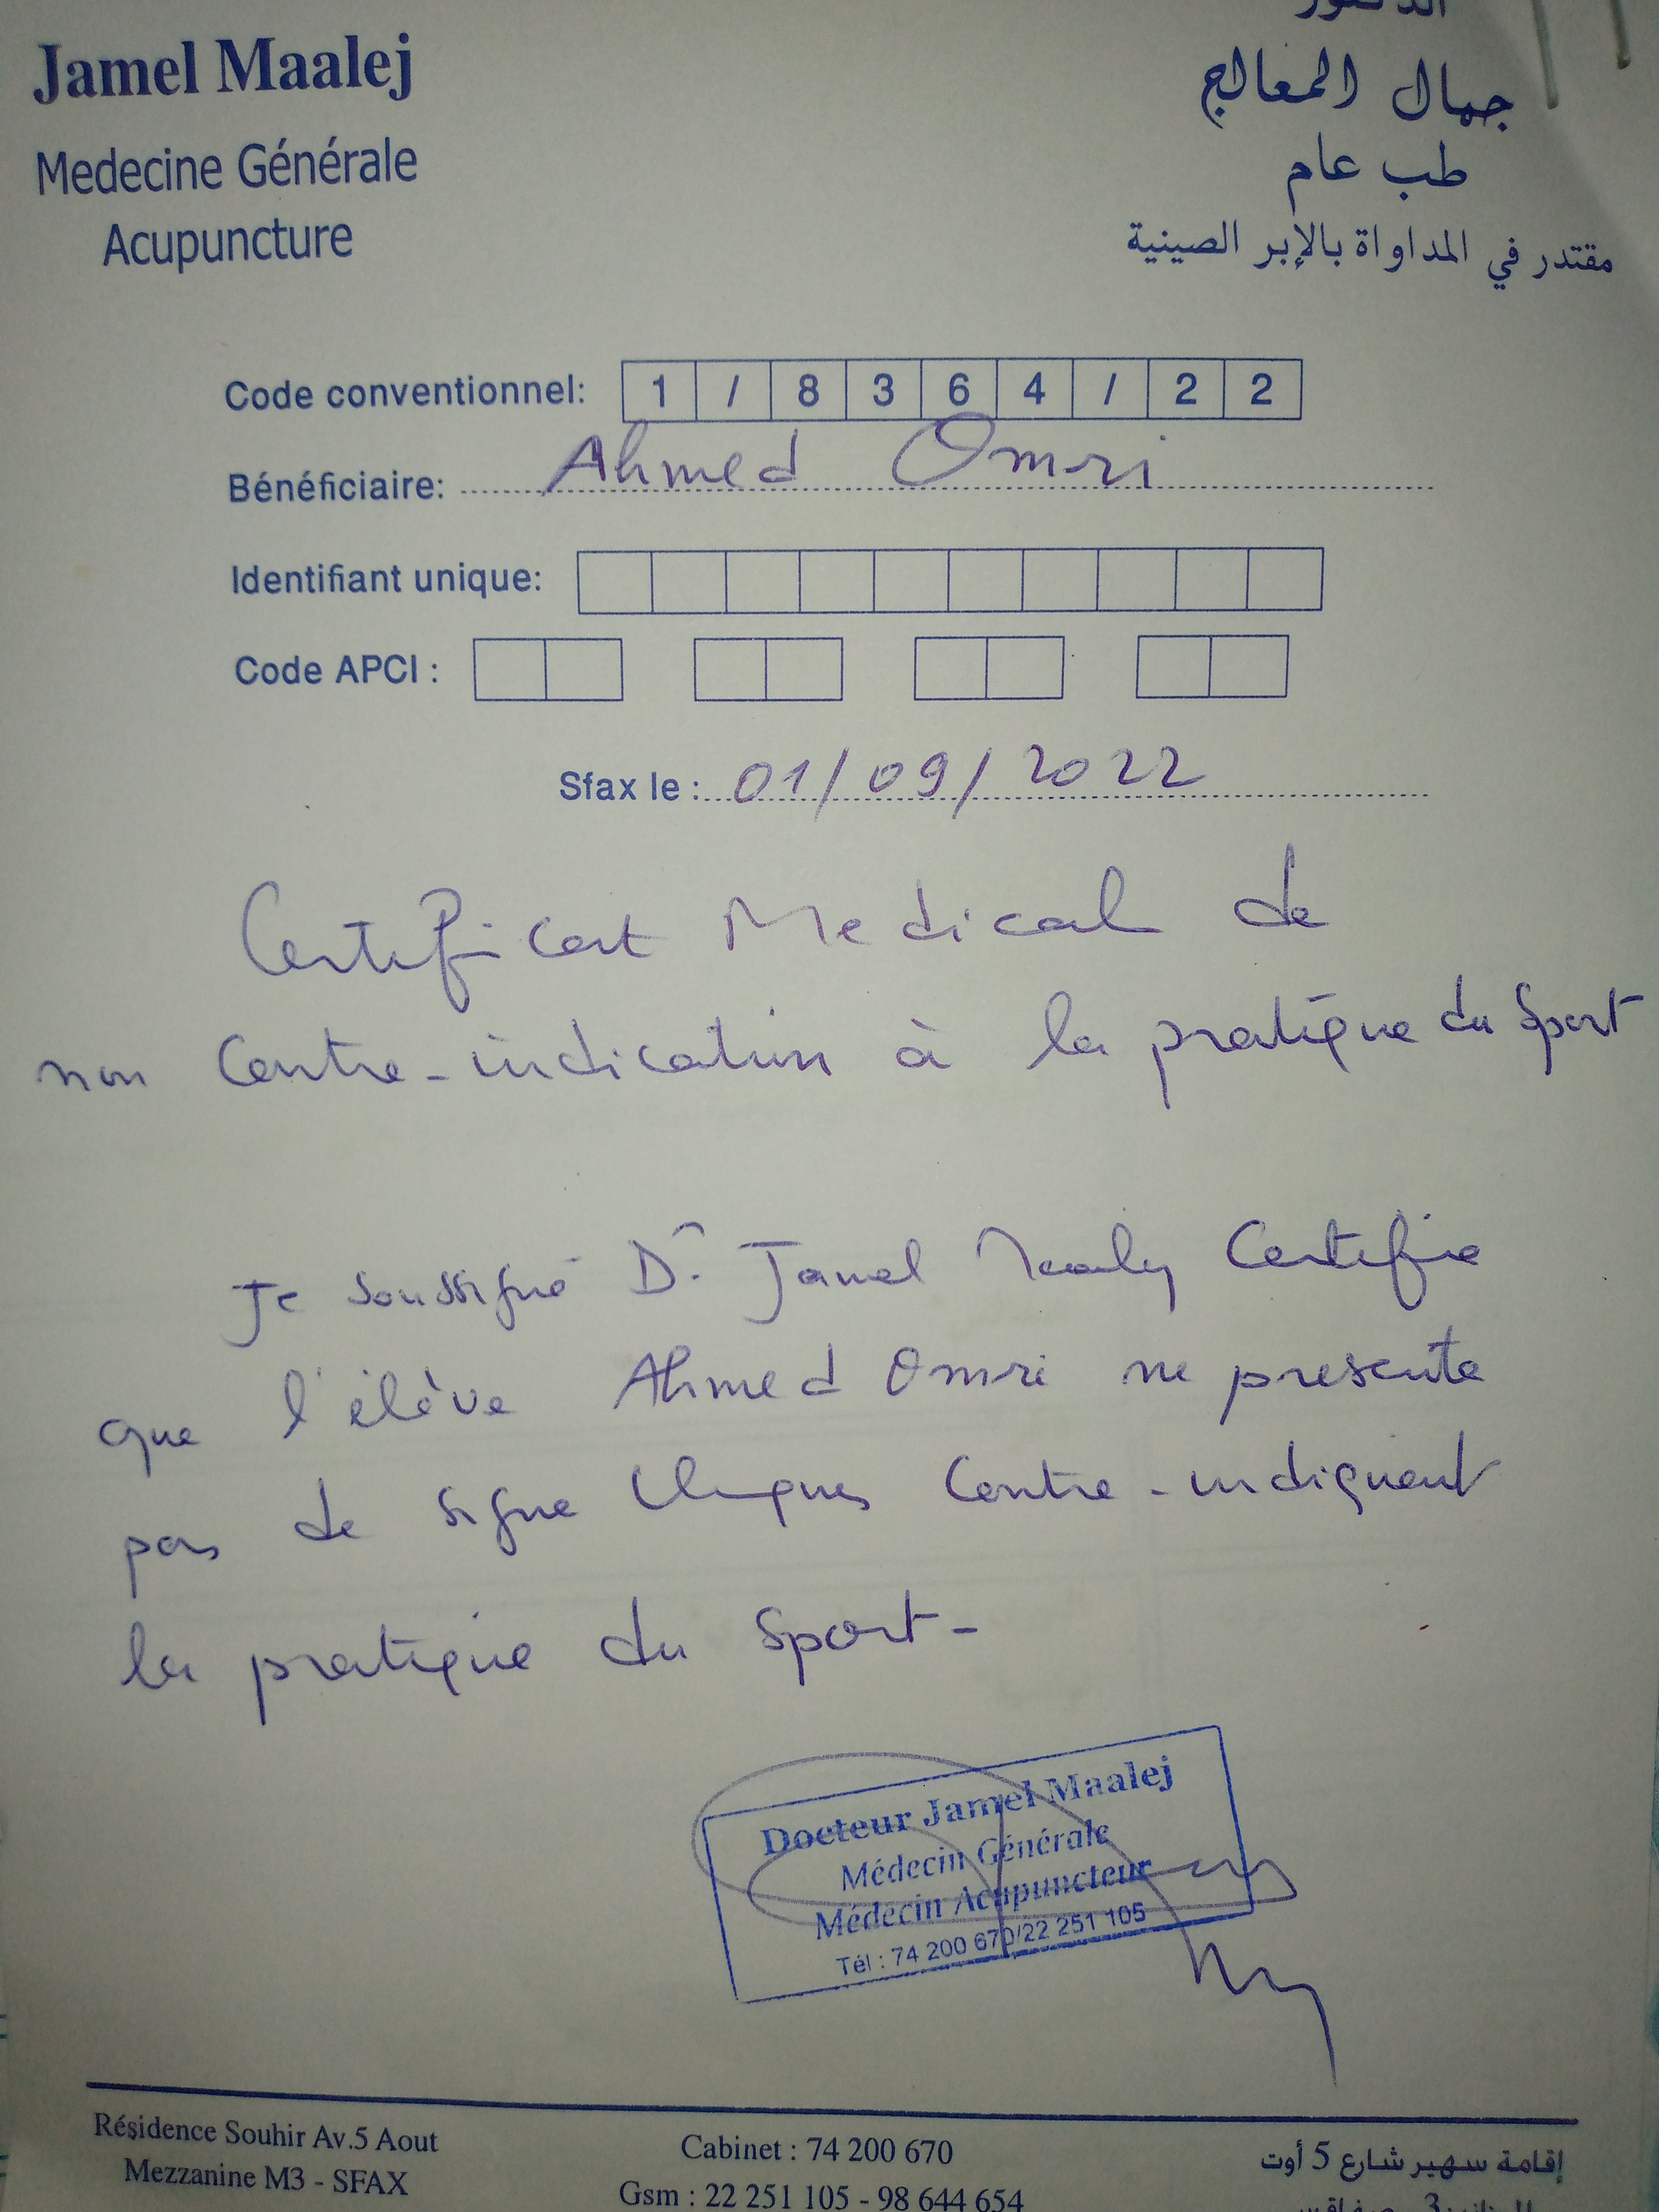 Jamel Maalej
Medecine Générale
Acupuncture
الدكتور
جمال المعالج
طب عام
مقتدر في المداواة بالإبر الصينية
Code conventionnel: 1 / 8 3 6 4 / 2 2
Bénéficiaire: Ahmed Omri
Identifiant unique:
Code APCI :
Sfax le : 01/09/2022
Certificat Medical de
non Contre-indication à la pratique du Sport
Je soussigné Dr Jamel Maalej Certifie
que l'élève Ahmed Omri ne presente
pas de signe Cliniques Contre-indiquent
la pratique du Sport-
Docteur Jamel Maalej
Médecin Générale
Médecin Acupuncteur
Tél : 74 200 670/22 251 105
Résidence Souhir Av.5 Aout
Mezzanine M3 - SFAX
Cabinet : 74 200 670
Gsm : 22 251 105 - 98 644 654
إقامة سهير شارع 5 أوت